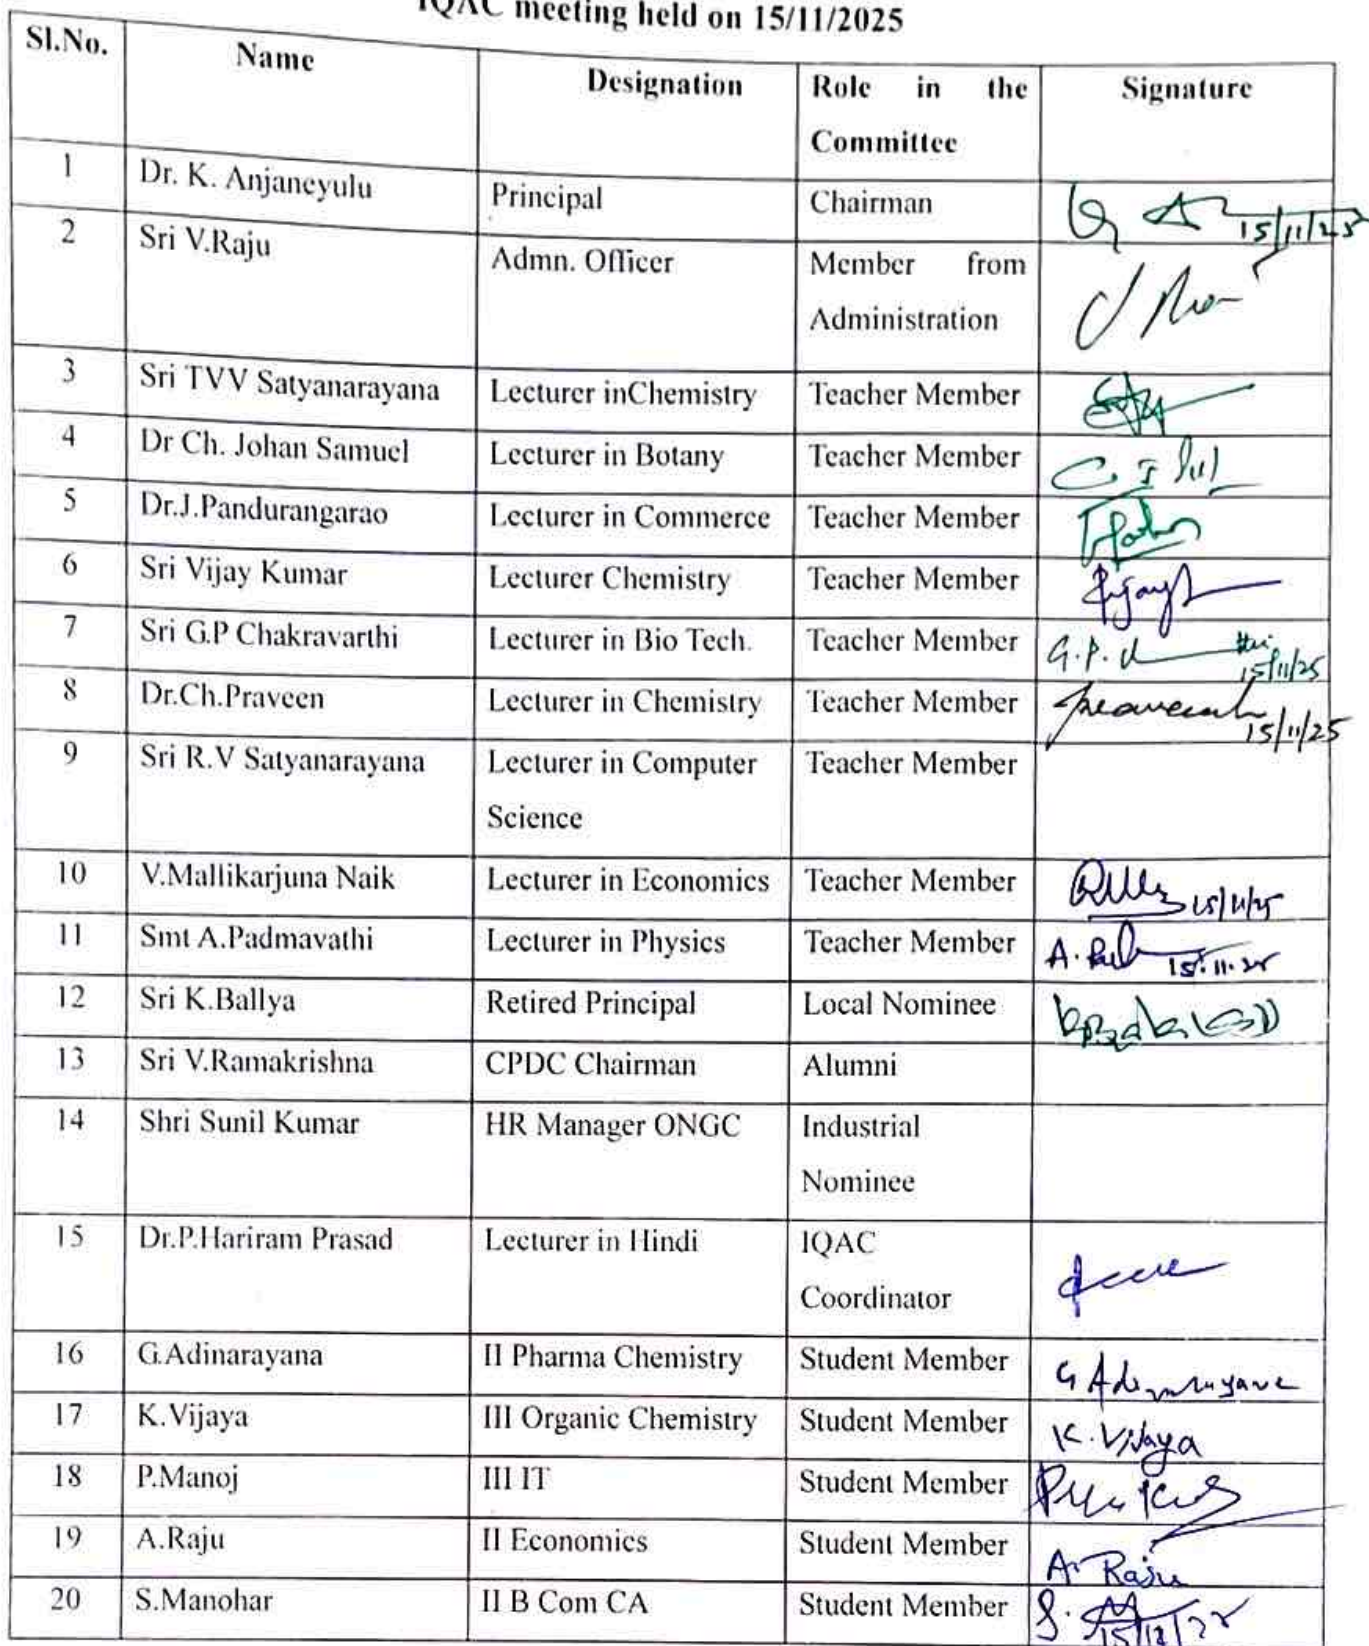 IQAC meeting held on 15/11/2025
Sl.No. Name Designation Role in the Signature
Committee
1 Dr. K. Anjaneyulu Principal Chairman 15/11/25
2 Sri V.Raju Admn. Officer Member from
Administration
3 Sri TVV Satyanarayana Lecturer inChemistry Teacher Member
4 Dr Ch. Johan Samuel Lecturer in Botany Teacher Member
5 Dr.J.Pandurangarao Lecturer in Commerce Teacher Member
6 Sri Vijay Kumar Lecturer Chemistry Teacher Member
7 Sri G.P Chakravarthi Lecturer in Bio Tech. Teacher Member G.P. 15/11/25
8 Dr.Ch.Praveen Lecturer in Chemistry Teacher Member 15/11/25
9 Sri R.V Satyanarayana Lecturer in Computer Teacher Member
Science
10 V.Mallikarjuna Naik Lecturer in Economics Teacher Member 15/11/25
11 Smt A.Padmavathi Lecturer in Physics Teacher Member A. 15.11.25
12 Sri K.Ballya Retired Principal Local Nominee
13 Sri V.Ramakrishna CPDC Chairman Alumni
14 Shri Sunil Kumar HR Manager ONGC Industrial
Nominee
15 Dr.P.Hariram Prasad Lecturer in Hindi IQAC
Coordinator
16 G.Adinarayana II Pharma Chemistry Student Member G Adinarayana
17 K.Vijaya III Organic Chemistry Student Member K.Vijaya
18 P.Manoj III IT Student Member
19 A.Raju II Economics Student Member A. Raju
20 S.Manohar II B Com CA Student Member S.